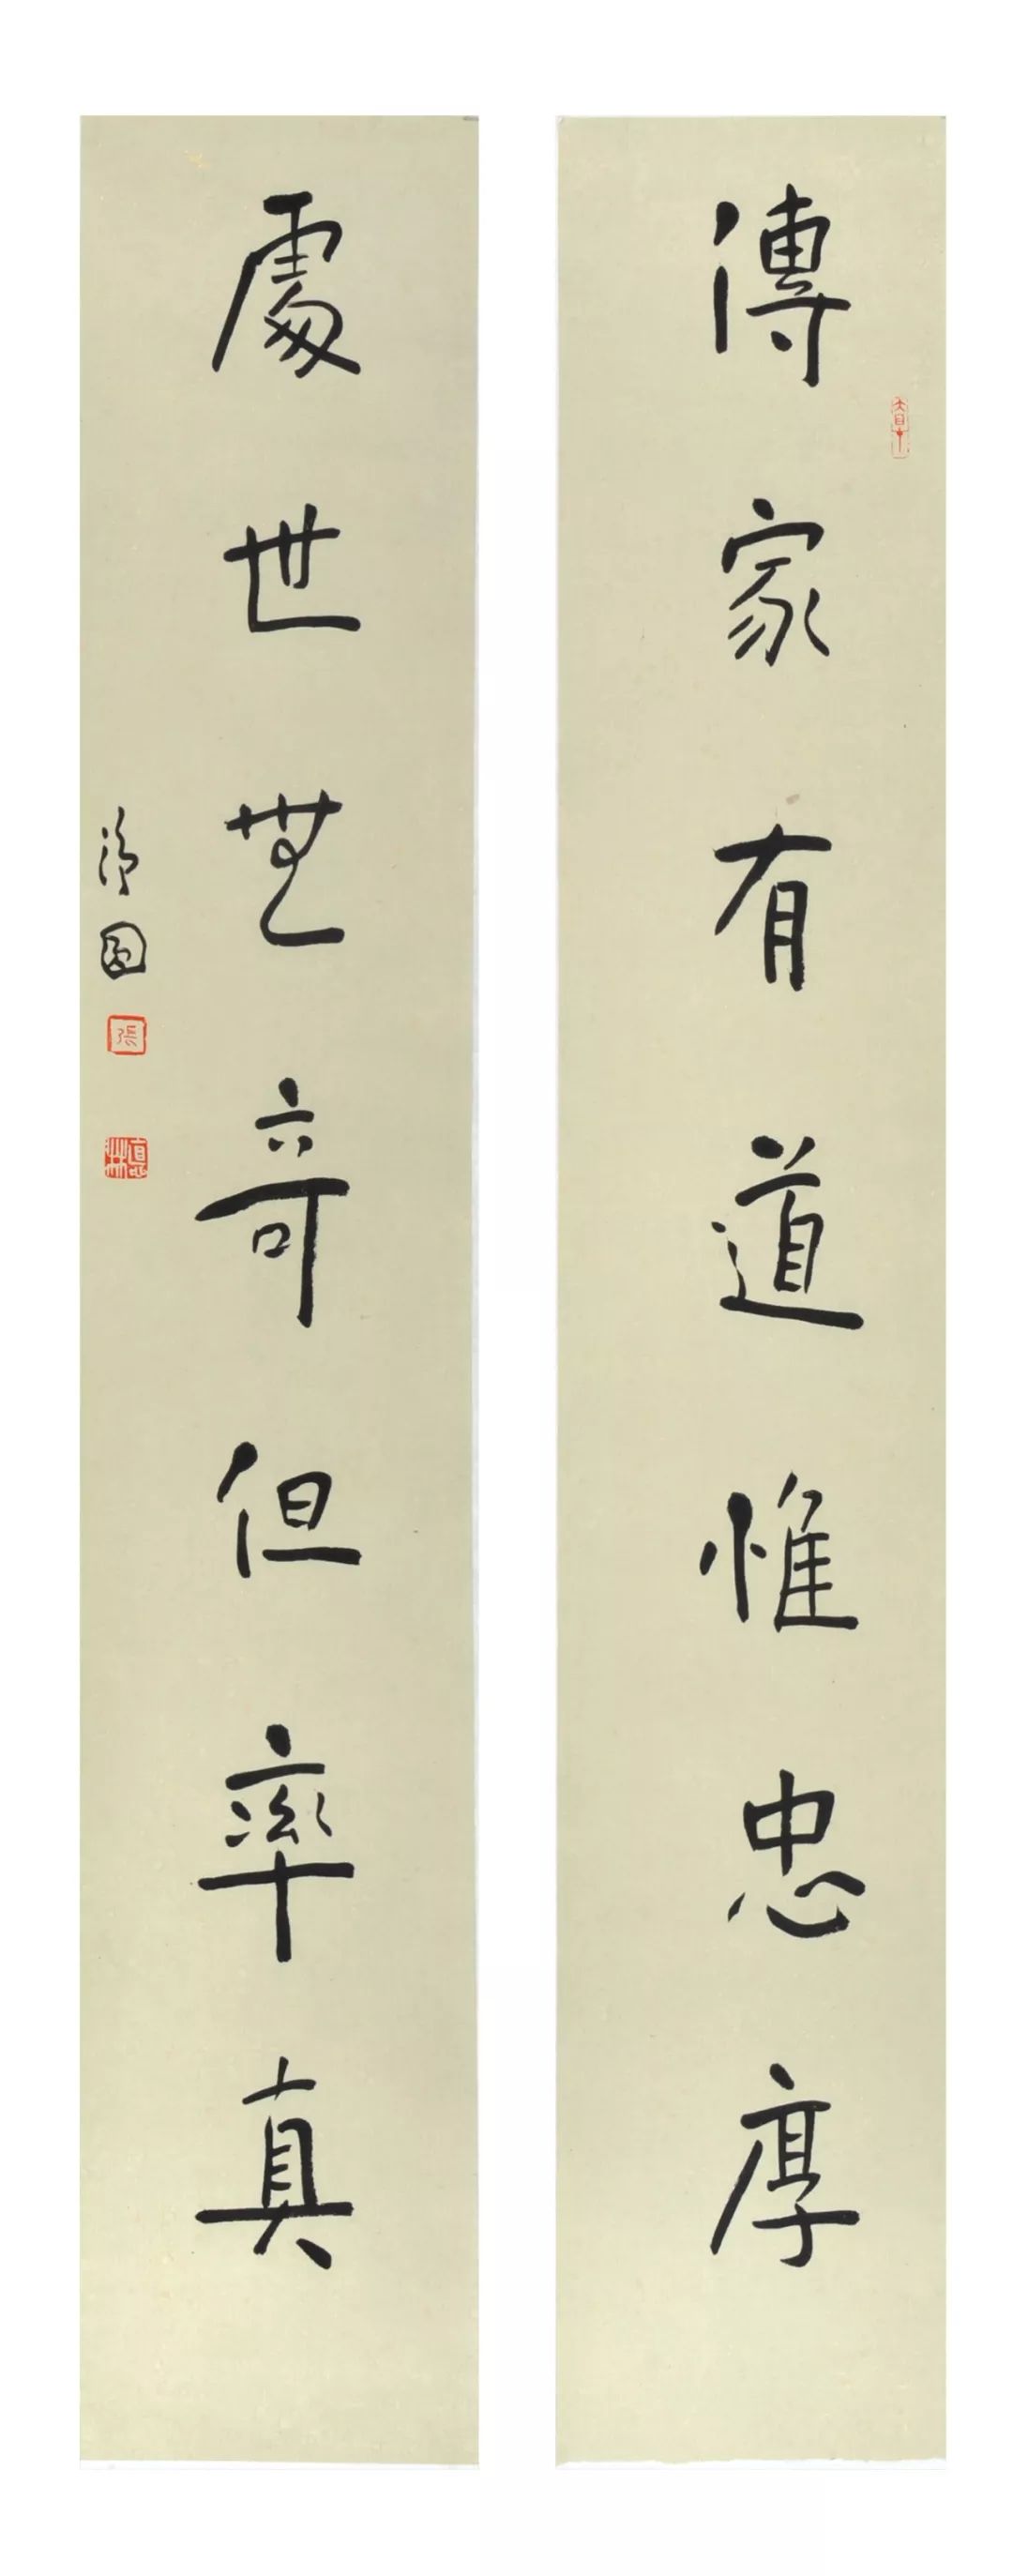 傳家有道惟忠厚
處世無奇但率真
淨圓
張